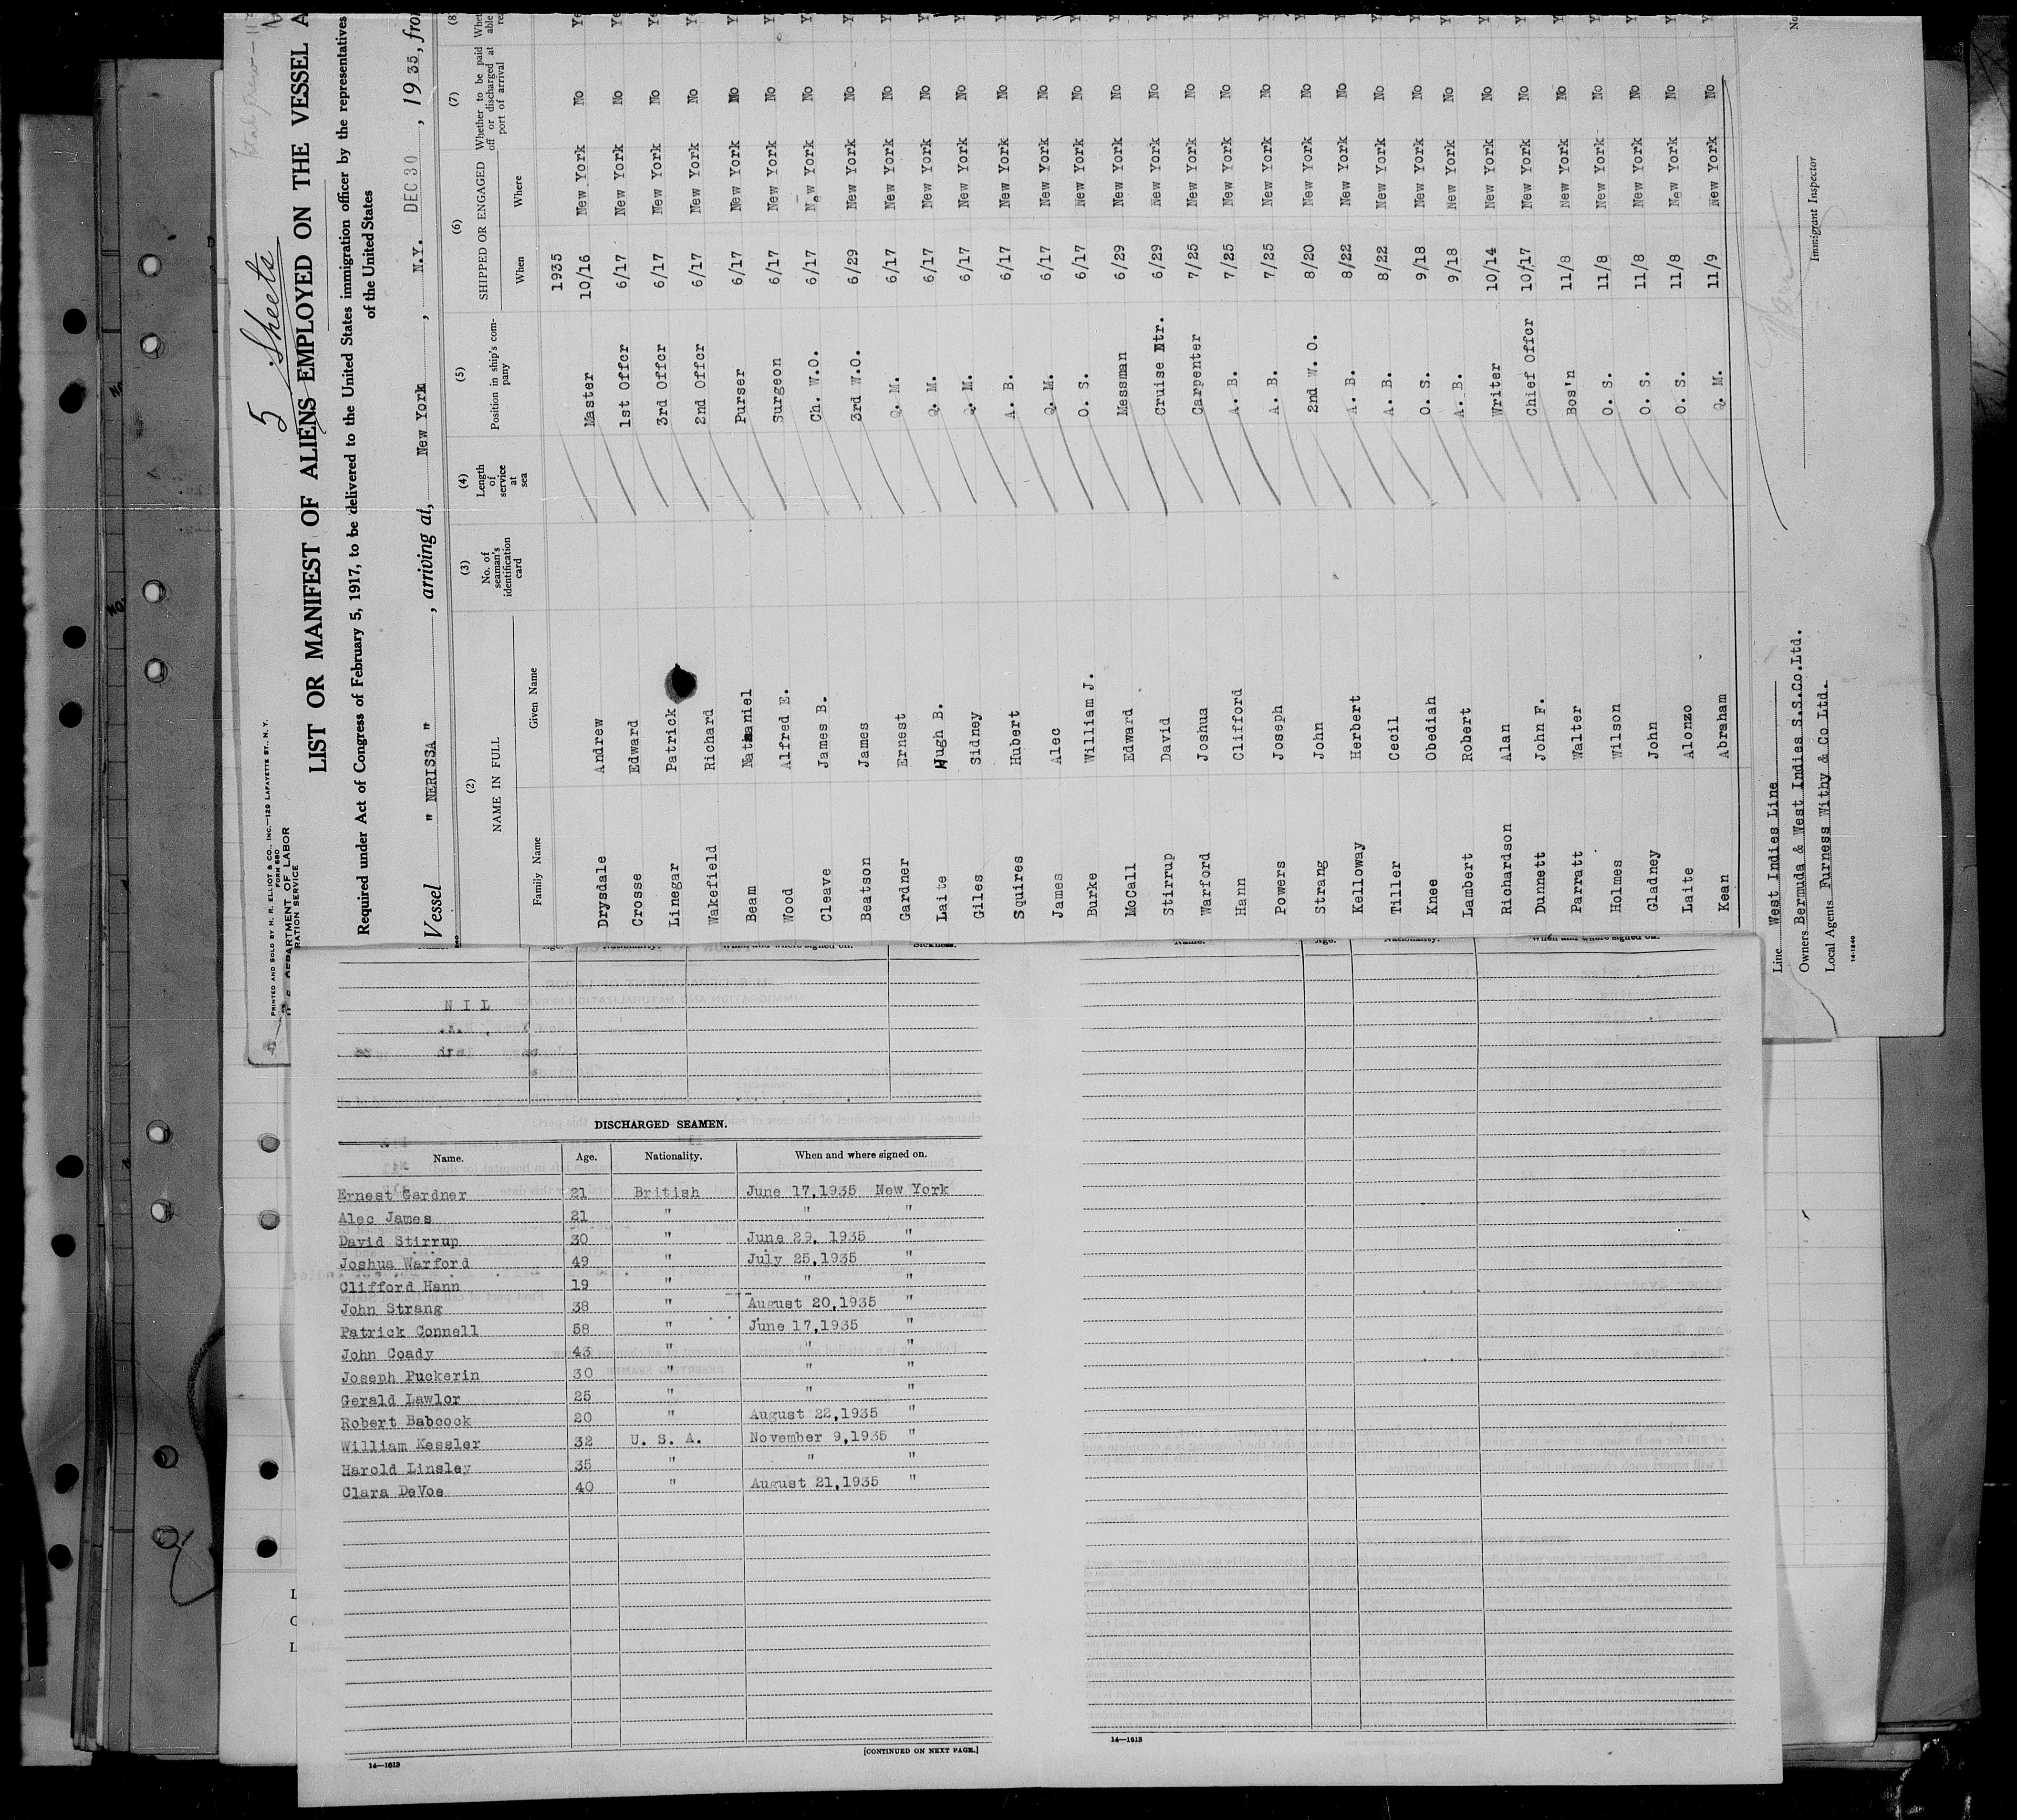 5 Sheets
PRINTED AND SOLD BY H. R. ELLIOT & CO., INC.—129 LAFAYETTE ST., N. Y.
FORM 680
DEPARTMENT OF LABOR
RATION SERVICE
LIST OR MANIFEST OF ALIENS EMPLOYED ON THE VESSEL A
Required under Act of Congress of February 5, 1917, to be delivered to the United States immigration officer by the representatives
of the United States
Vessel " NERISSA " , arriving at, New York , N.Y. DEC 30 , 1935, from
(2) (3) (4) (5) (6) (7) (8)
NAME IN FULL No. of seaman's identification card Length of service at sea Position in ship's company SHIPPED OR ENGAGED Whether to be paid off or discharged at port of arrival
Family Name Given Name When Where
1935
Drysdale Andrew Master 10/16 New York No Ye
Crosse Edward 1st Offcr 6/17 New York No Ye
Linegar Patrick 3rd Offcr 6/17 New York No Ye
Wakefield Richard 2nd Offcr 6/17 New York No Y
Beam Nathaniel Purser 6/17 New York No Y
Wood Alfred E. Surgeon 6/17 New York No Y
Cleave James B. Ch. W.O. 6/17 New York No Y
Beatson James 3rd W.O. 6/29 New York No Y
Gardner Ernest Q. M. 6/17 New York No Y
Laite Hugh B. Q. M. 6/17 New York No Y
Giles Sidney Q. M. 6/17 New York No Y
Squires Hubert A. B. 6/17 New York No Y
James Alec Q. M. 6/17 New York No Y
Burke William J. O. S. 6/17 New York No Y
McCall Edward Messman 6/29 New York No Y
Stirrup David Cruise Dtr. 6/29 New York No Y
Warford Joshua Carpenter 7/25 New York No Y
Hann Clifford A. B. 7/25 New York No Y
Powers Joseph A. B. 7/25 New York No Y
Strang John 2nd W. O. 8/20 New York No Y
Kelloway Herbert A. B. 8/22 New York No Y
Tiller Cecil A. B. 8/22 New York No Y
Knee Obediah O. S. 9/18 New York No Y
Lambert Robert A. B. 9/18 New York No Y
Richardson Alan Writer 10/14 New York No Y
Dunnett John F. Chief Offcr 10/17 New York No Y
Parratt Walter Bos'n 11/8 New York No Y
Holmes Wilson O. S. 11/8 New York No Y
Gladney John O. S. 11/8 New York No Y
Laite Alonzo O. S. 11/8 New York No Y
Kean Abraham Q. M. 11/9 New York No Y
Line West Indies Line
Owners Bermuda & West Indies S.S.Co.Ltd.
Local Agents Furness Withy & Co Ltd.
14-1240
Immigrant Inspector
No
Age. Nationality. When and where signed on. Sickness.
Name. Age. Nationality. When and where signed on.
N I L
DISCHARGED SEAMEN.
Name. Age. Nationality. When and where signed on.
Ernest Gardner 21 British June 17,1935 New York
Alec James 21 " " "
David Stirrup 30 " June 29, 1935 "
Joshua Warford 49 " July 25,1935 "
Clifford Hann 19 " " "
John Strang 38 " August 20,1935 "
Patrick Connell 58 " June 17,1935 "
John Coady 43 " " "
Joseph Puckerin 30 " " "
Gerald Lawlor 25 " " "
Robert Babcock 20 " August 22,1935 "
William Kessler 32 U. S. A. November 9,1935 "
Harold Linsley 35 " " "
Clara DeVoe 40 " August 21,1935 "
[CONTINUED ON NEXT PAGE.]
14—1613
14—1613